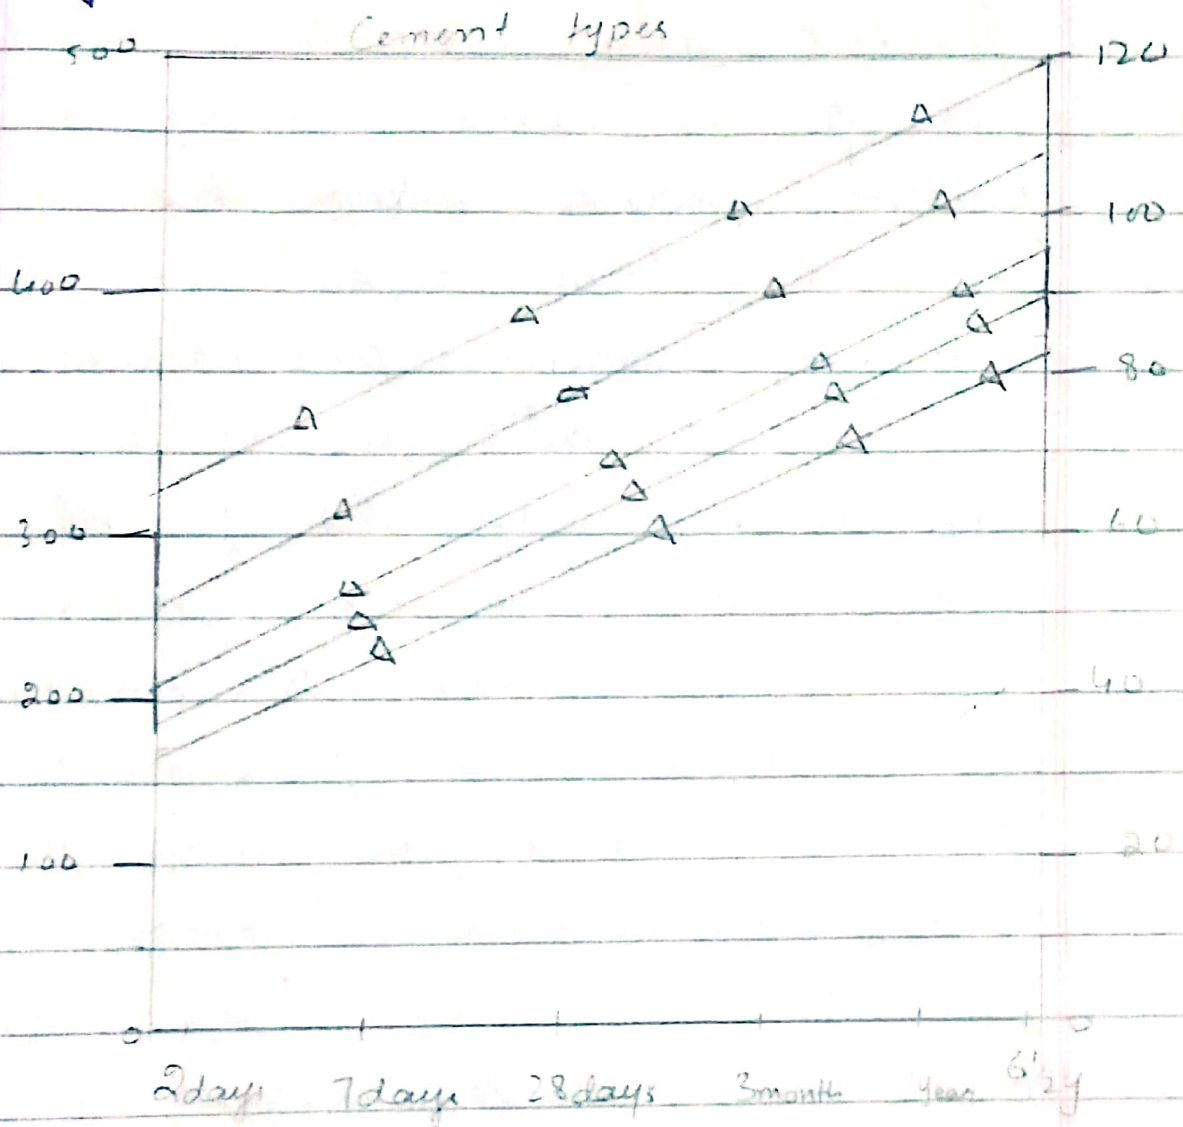 Cement types
500 120
100
400
80
300 60
200 40
100 20
0 0
2days 7days 28days 3month year 6½y